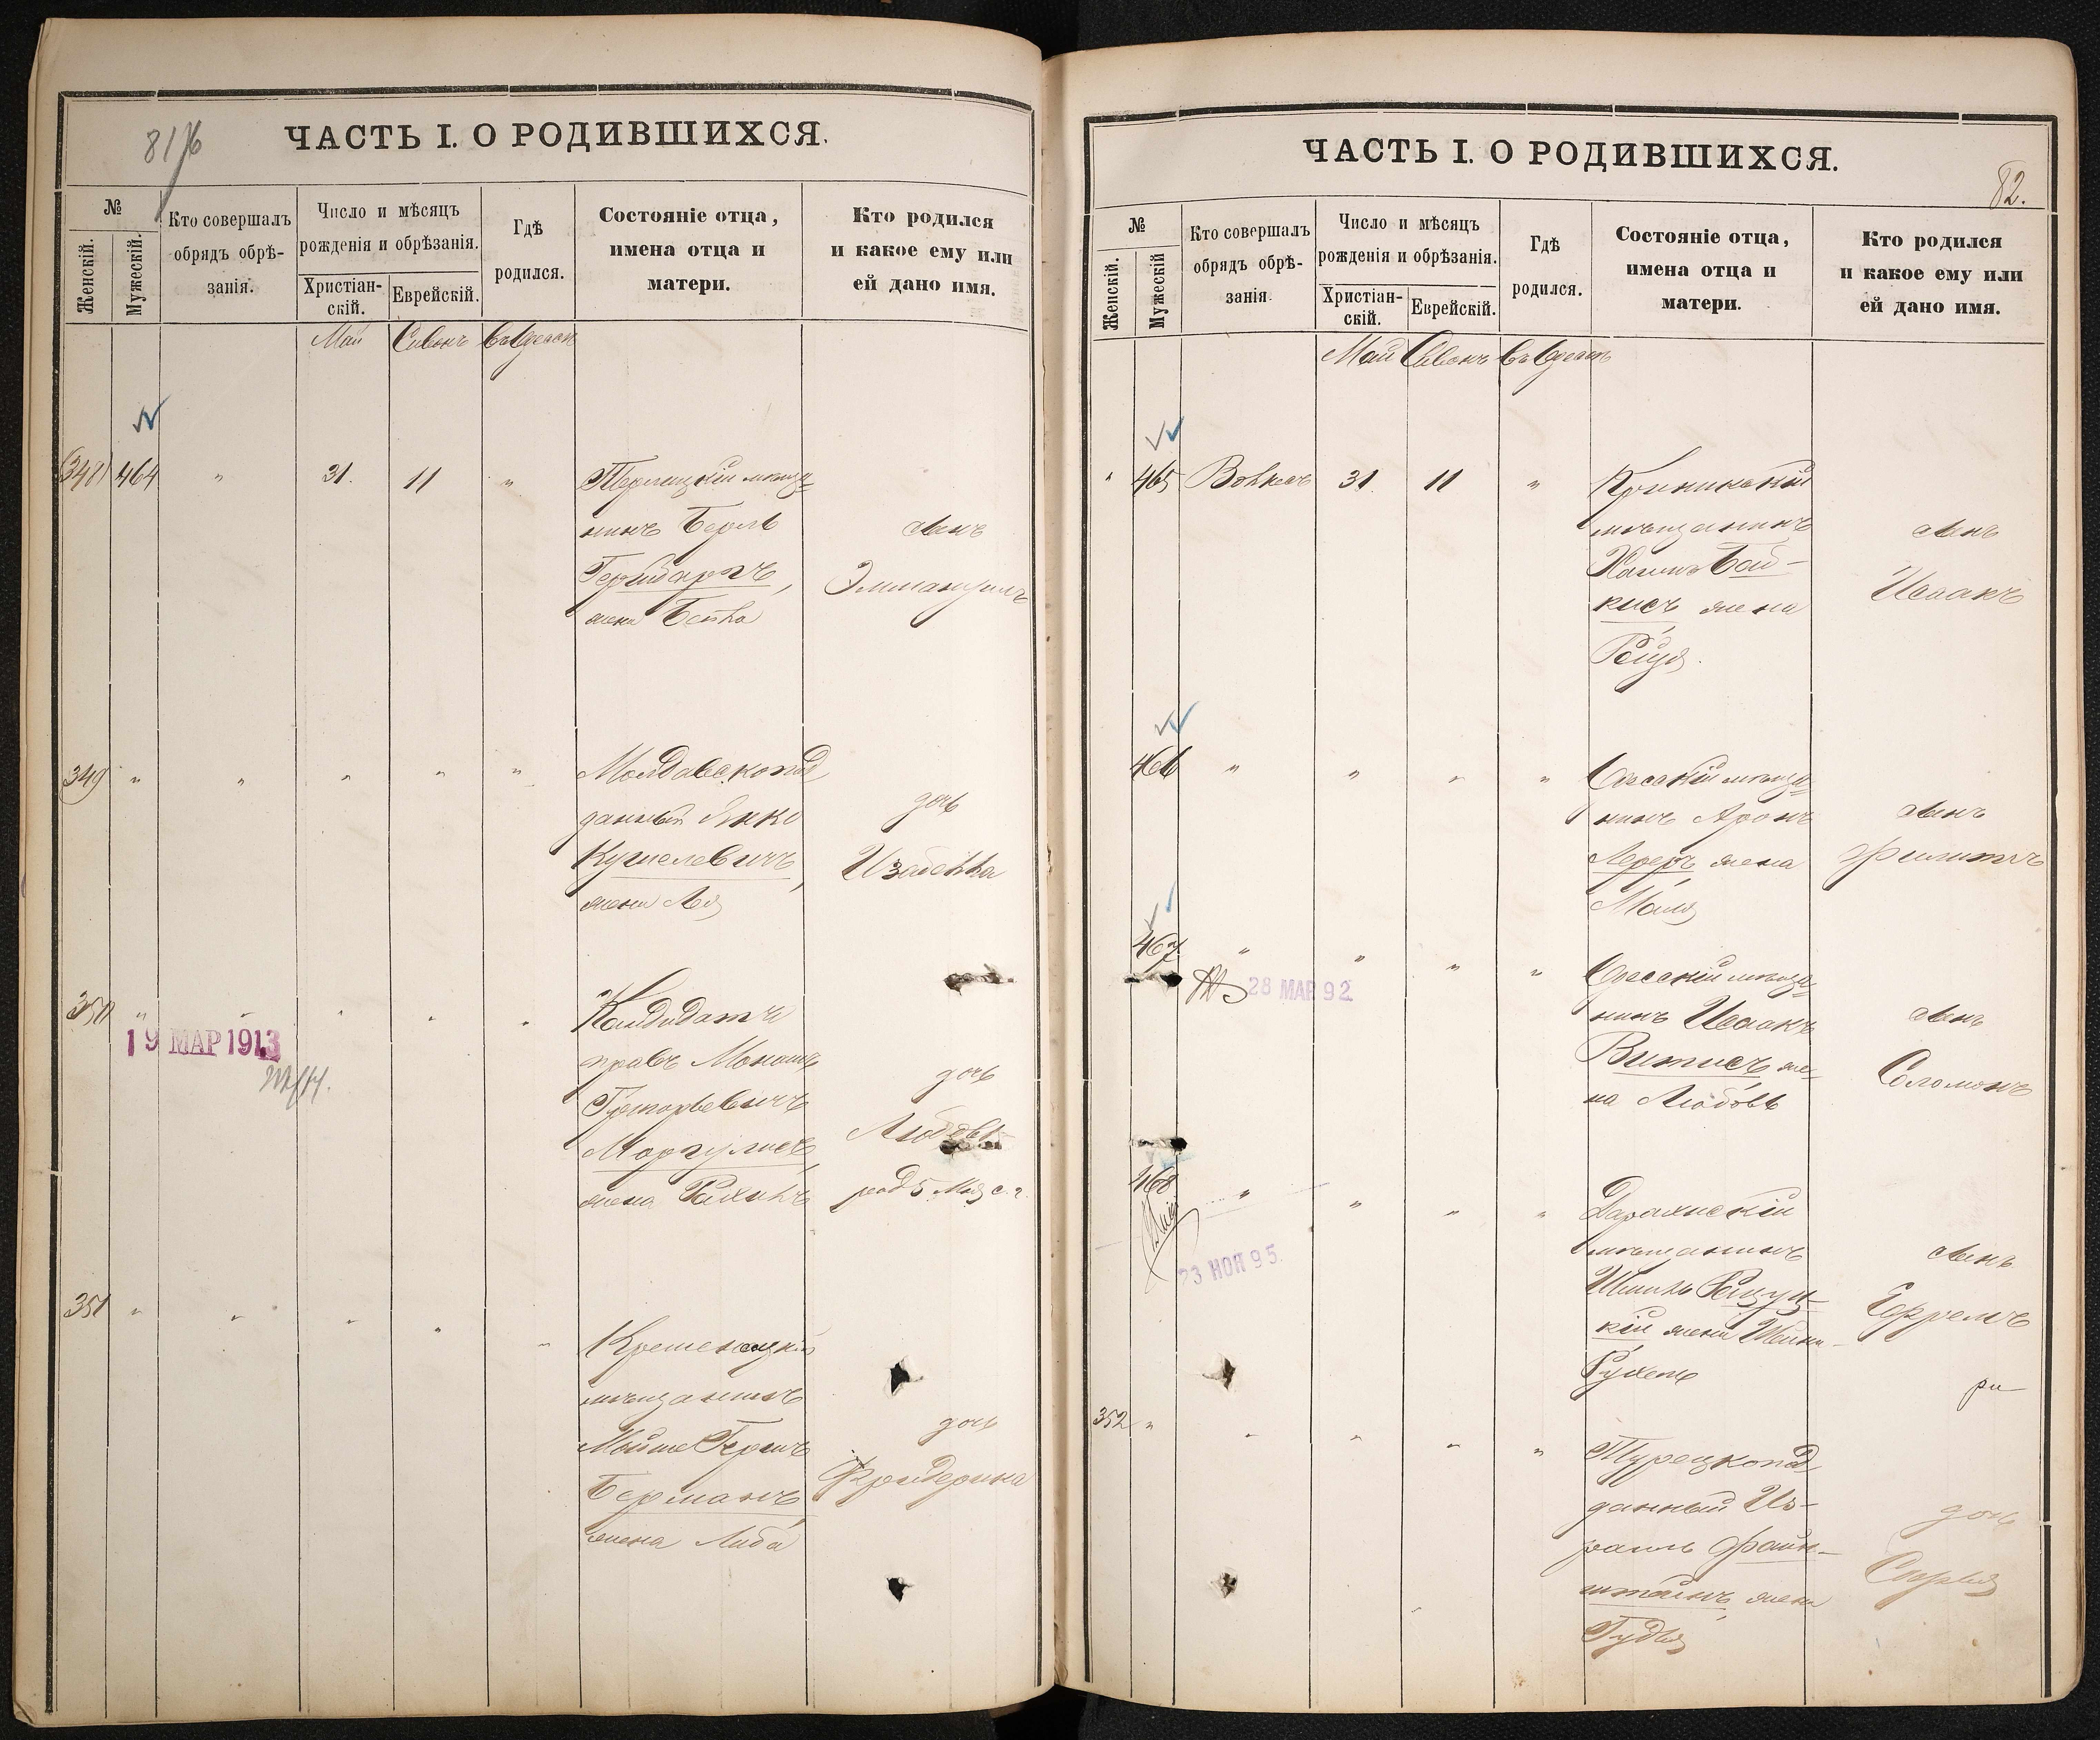 81/б
ЧАСТЬ I. О РОДИВШИХСЯ.
№
Женскій.
Мужескій.
Кто совершалъ
обрядъ обрѣ-
занія.
Число и мѣсяцъ
рожденія и обрѣзанія.
Христіан-
скій.
Еврейскій.
Гдѣ
родился.
Состояніе отца,
имена отца и
матери.
Кто родился
и какое ему или
ей дано имя.
Май Сивонъ въ Одессѣ
348 464 " 31. 11 "
мѣща-
нинъ Берль
жена Бейла
сынъ
Эммануилъ
349 " " " " "
Молдавскопод
данный Янко
Кушелевичъ,
жена Лея
дочь
Изабелла
350 " " " " "
19 МАР 1913
Кандидатъ
правъ
Григорьевичъ
Моргулисъ,
жена
дочь
Любовь
род 5 Мая с. г.
351 " " " " "
Кременецкій
мѣщанинъ
Мойше Гершъ
Берманъ
жена Либа
дочь
Фридерика
82.
ЧАСТЬ I. О РОДИВШИХСЯ.
№
Женскій.
Мужескій
Кто совершалъ
обрядъ обрѣ-
занія.
Число и мѣсяцъ
рожденія и обрѣзанія.
Христіан-
скій.
Еврейскій.
Гдѣ
родился.
Состояніе отца,
имена отца и
матери.
Кто родился
и какое ему или
ей дано имя.
Май Сивонъ въ Одессѣ
" 465 31. 11 "
мѣщанинъ
Хаимъ Бай-
кисъ жена
Рейзя.
сынъ
Исаакъ
466 " " " "
Одесскій мѣща-
нинъ Аронъ
Лереръ жена
Маля
сынъ
Филиппъ
467 " " " "
28 МАР 92
Одесскій мѣща-
нинъ Исаакъ
Витисъ же-
на Любовь
сынъ
Соломонъ
468 " " " "
23 НОЯ 95
мѣщанинъ
кій жена
Рухель
сынъ
Ефремъ
352 " " " " "
Турецкопод
данный Из-
раиль Файн-
штейнъ жена
Гудья
дочь
Софья